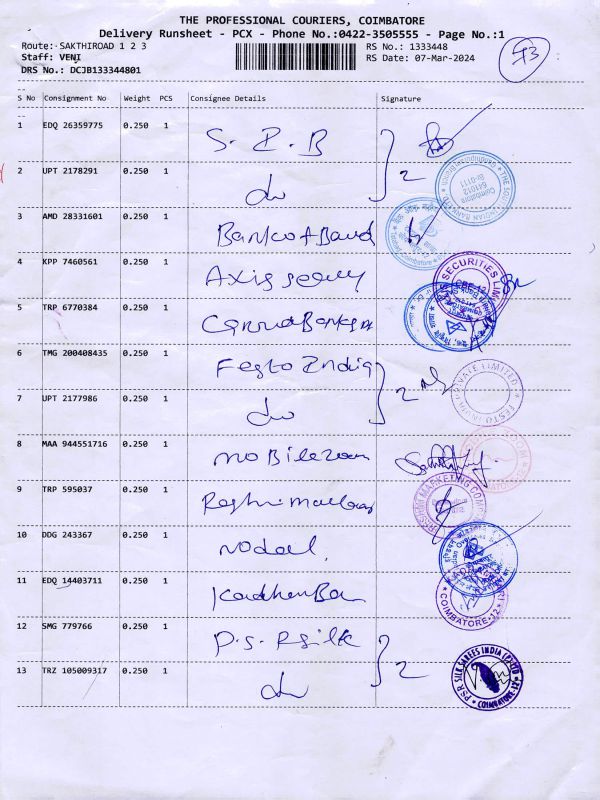 THE PROFESSIONAL COURIERS, COIMBATORE
Delivery Runsheet - PCX - Phone No.:0422-3505555 - Page No.:1
Route: SAKTHIROAD 1 2 3
RS No.: 1333448
13
Staff: VENI
RS Date: 07-Mar-2024
DRS No.: DCJB133344801
S No Consignment No Weight PCS Consignee Details Signature
1 EDQ 26359775 0.250 1 S. I. B
2 UPT 2178291 0.250 1 do 2
3 AMD 28331601 0.250 1 Bank of Baud
4 KPP 7460561 0.250 1 Axis
5 TRP 6770384 0.250 1
6 TMG 200408435 0.250 1 Festo India
7 UPT 2177986 0.250 1 do 2
8 MAA 944551716 0.250 1
9 TRP 595037 0.250 1
10 DDG 243367 0.250 1 Nodal
11 EDQ 14403711 0.250 1
12 SMG 779766 0.250 1 P.S.R silk
13 TRZ 105009317 0.250 1 do 2
THE SOUTH INDIAN BANK LTD
Coimbatore
641012
Br-0111
SECURITIES LIM
CBE-12
PRIVATE LIMITED
FESTO INDIA
RASHMI MARKETING COMP
COIMBATORE-12
PSR SILK SAREES INDIA (P) LTD
COIMBATORE-12